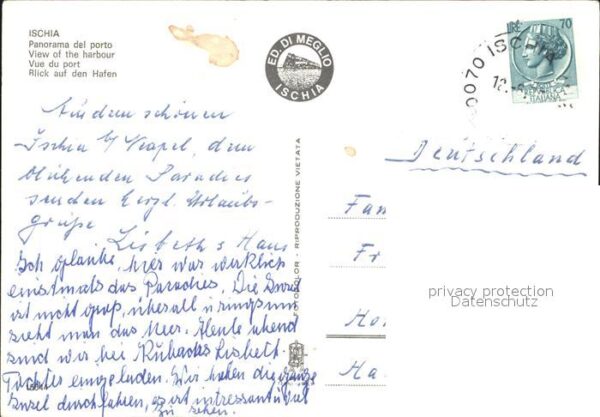 ISCHIA
Panorama del porto
View of the harbour
Vue du port
Blick auf den Hafen
ED. DI MEGLIO
ISCHIA
LIRE 70
80070 ISCHIA
12.
REPUBBLICA
ITALIANA
Aus dem schönen
Ischia b/ Neapel, dem
blühenden Paradies
senden herzl. Urlaubs-
grüße
Lisbeth & Hans
Ich glaube, hier war wirklich
einstmals das Paradies. Die Insel
ist nicht groß, überall u ringsum
sieht man das Meer. Heute abend
sind wir bei Lisbeth
Tochter eingeladen. Wir haben die ganze
Insel durchfahren, es ist interessant u viel
zu sehen.
RIPRODUZIONE VIETATA
Deutschland
Fam
Fr
Ho
Ha
privacy protection
Datenschutz